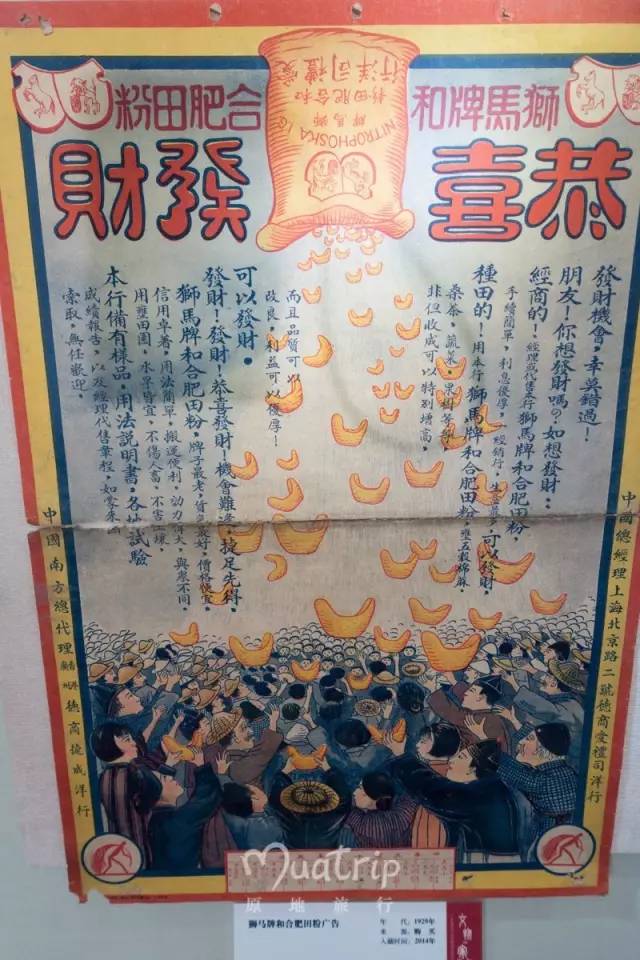 獅馬牌和合肥田粉
恭喜發財
愛禮司洋行
獅馬牌
和合肥田粉
NITROPHOSKA IG
發財機會，幸莫錯過！
朋友！你想發財嗎？如想發財：
經商的！經理或代售本行獅馬牌和合肥田粉
手續簡單，利息優厚，經銷行，生意最多可以發財。
種田的！用本行獅馬牌和合肥田粉，壅五穀棉麻，
桑茶，蔬菜，果樹等，
非但收成可以特別增高，
而且品質可以
改良，利益可以優厚！
可以發財。
發財！發財！恭喜發財！機會難逢，捷足先得，
獅馬牌和合肥田粉，牌子最老，貨色最好，價格便宜，
信用卓著，用法簡單，搬運便利，功力偉大，與眾不同，
用壅田園，水旱皆宜，不傷人畜，不害土壤，
本行備有樣品，用法說明書，各地試驗
成績報告，以及經理代售章程，如蒙來函
索取，無任歡迎。
中國總經理上海北京路二號德商愛禮司洋行
中國南方總代理香港廣州德商捷成洋行
muatrip
原地旅行
狮马牌和合肥田粉广告
年 代：1929年
来 源：购 买
入藏时间：2014年